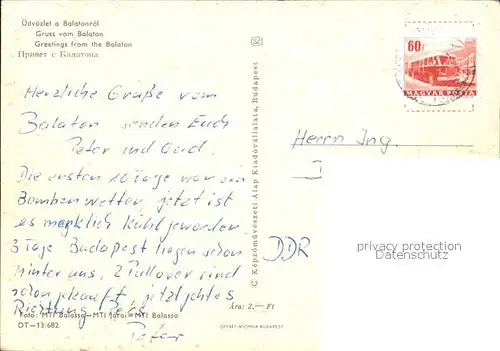 Üdvözlet a Balatonról
Gruss vom Balaton
Greetings from the Balaton
Привет с Балатона
Herzliche Grüße vom
Balaton senden Euch
Peter und Gerd.
Die ersten 10 Tage war ein
Bombenwetter, jetzt ist
es merklich kühl geworden.
3 Tage Budapest liegen schon
hinter uns, 2 Pullover sind
schon gekauft, jetzt gehts
Richtung Pecs
Peter
Foto: MTI Balassa—MTI Járai—MTI Balassa
DT—13/682
Ára: 2,— Ft
OFFSET-NYOMDA BUDAPEST
© Képzőművészeti Alap Kiadóvállalata, Budapest
60f
MAGYAR POSTA
Herrn Ing.
I
DDR
privacy protection
Datenschutz